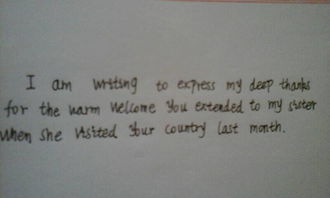 I am writing to express my deep thanks
for the warm welcome you extended to my sister
when she visited your country last month.